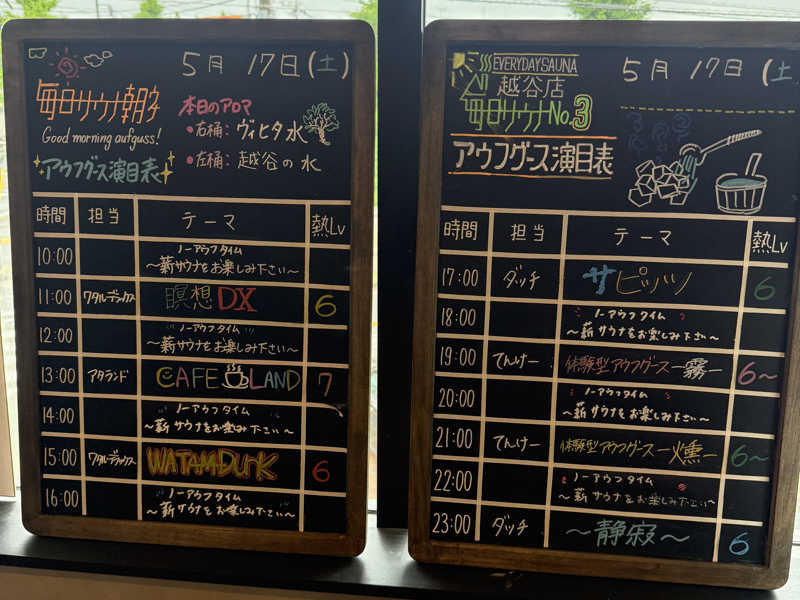 5月 17日(土)
毎日サウナ朝会
Good morning aufguss!
アウフグース演目表
本日のアロマ
•右桶: ヴィヒタ水
•左桶: 越谷の水
時間 担当 テーマ 熱Lv
10:00 ノーアウフタイム
〜薪サウナをお楽しみ下さい〜
11:00 ワタルデラックス 瞑想DX 6
12:00 ノーアウフタイム
〜薪サウナをお楽しみ下さい〜
13:00 アタランド CAFE LAND 7
14:00 ノーアウフタイム
〜薪サウナをお楽しみ下さい〜
15:00 ワタルデラックス WATAMDunK 6
16:00 ノーアウフタイム
〜薪サウナをお楽しみ下さい〜
EVERYDAYSAUNA
越谷店
毎日サウナNo.3
アウフグース演目表
5月 17日(土)
時間 担当 テーマ 熱Lv
17:00 ダッチ サピッツ 6
18:00 ノーアウフタイム
〜薪サウナをお楽しみ下さい〜
19:00 てんけー 体験型アウフグース ー霧ー 6〜
20:00 ノーアウフタイム
〜薪サウナをお楽しみ下さい〜
21:00 てんけー 体験型アウフグース ー燻ー 6〜
22:00 ノーアウフタイム
〜薪サウナをお楽しみ下さい〜
23:00 ダッチ 〜静寂〜 6